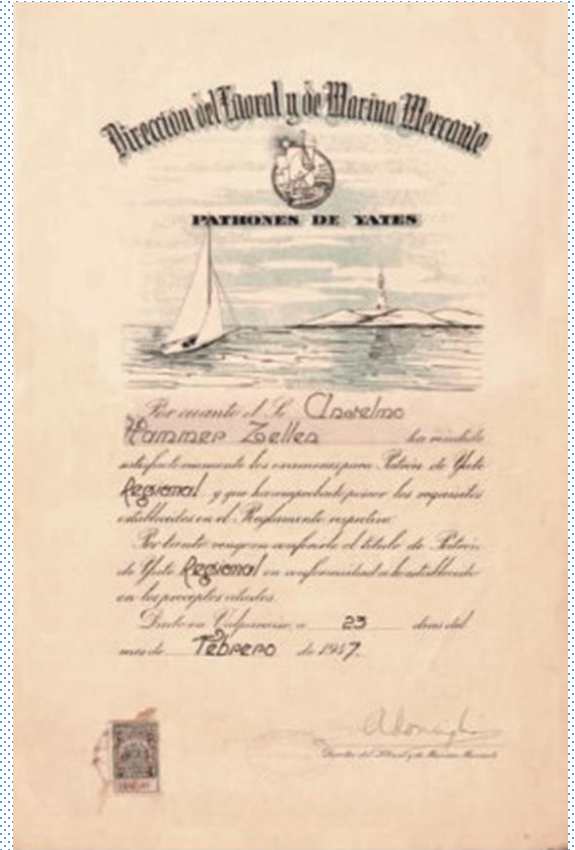 Direccion del Litoral y de Marina Mercante
PATRONES DE YATES
Por cuanto el Sr. Anselmo
Hammer Zeller ha rendido
satisfactoriamente los examenes para Patrón de Yate
Regional y que ha comprobado poseer los requisitos
establecidos en el Reglamento respectivo
Por tanto vengo en conferirle el titulo de Patrón
de Yate Regional en conformidad a lo establecido
en los preceptos citados.
Dado en Valparaiso a 23 dias del
mes de Febrero de 1947.
Director del Litoral y de Marina Mercante